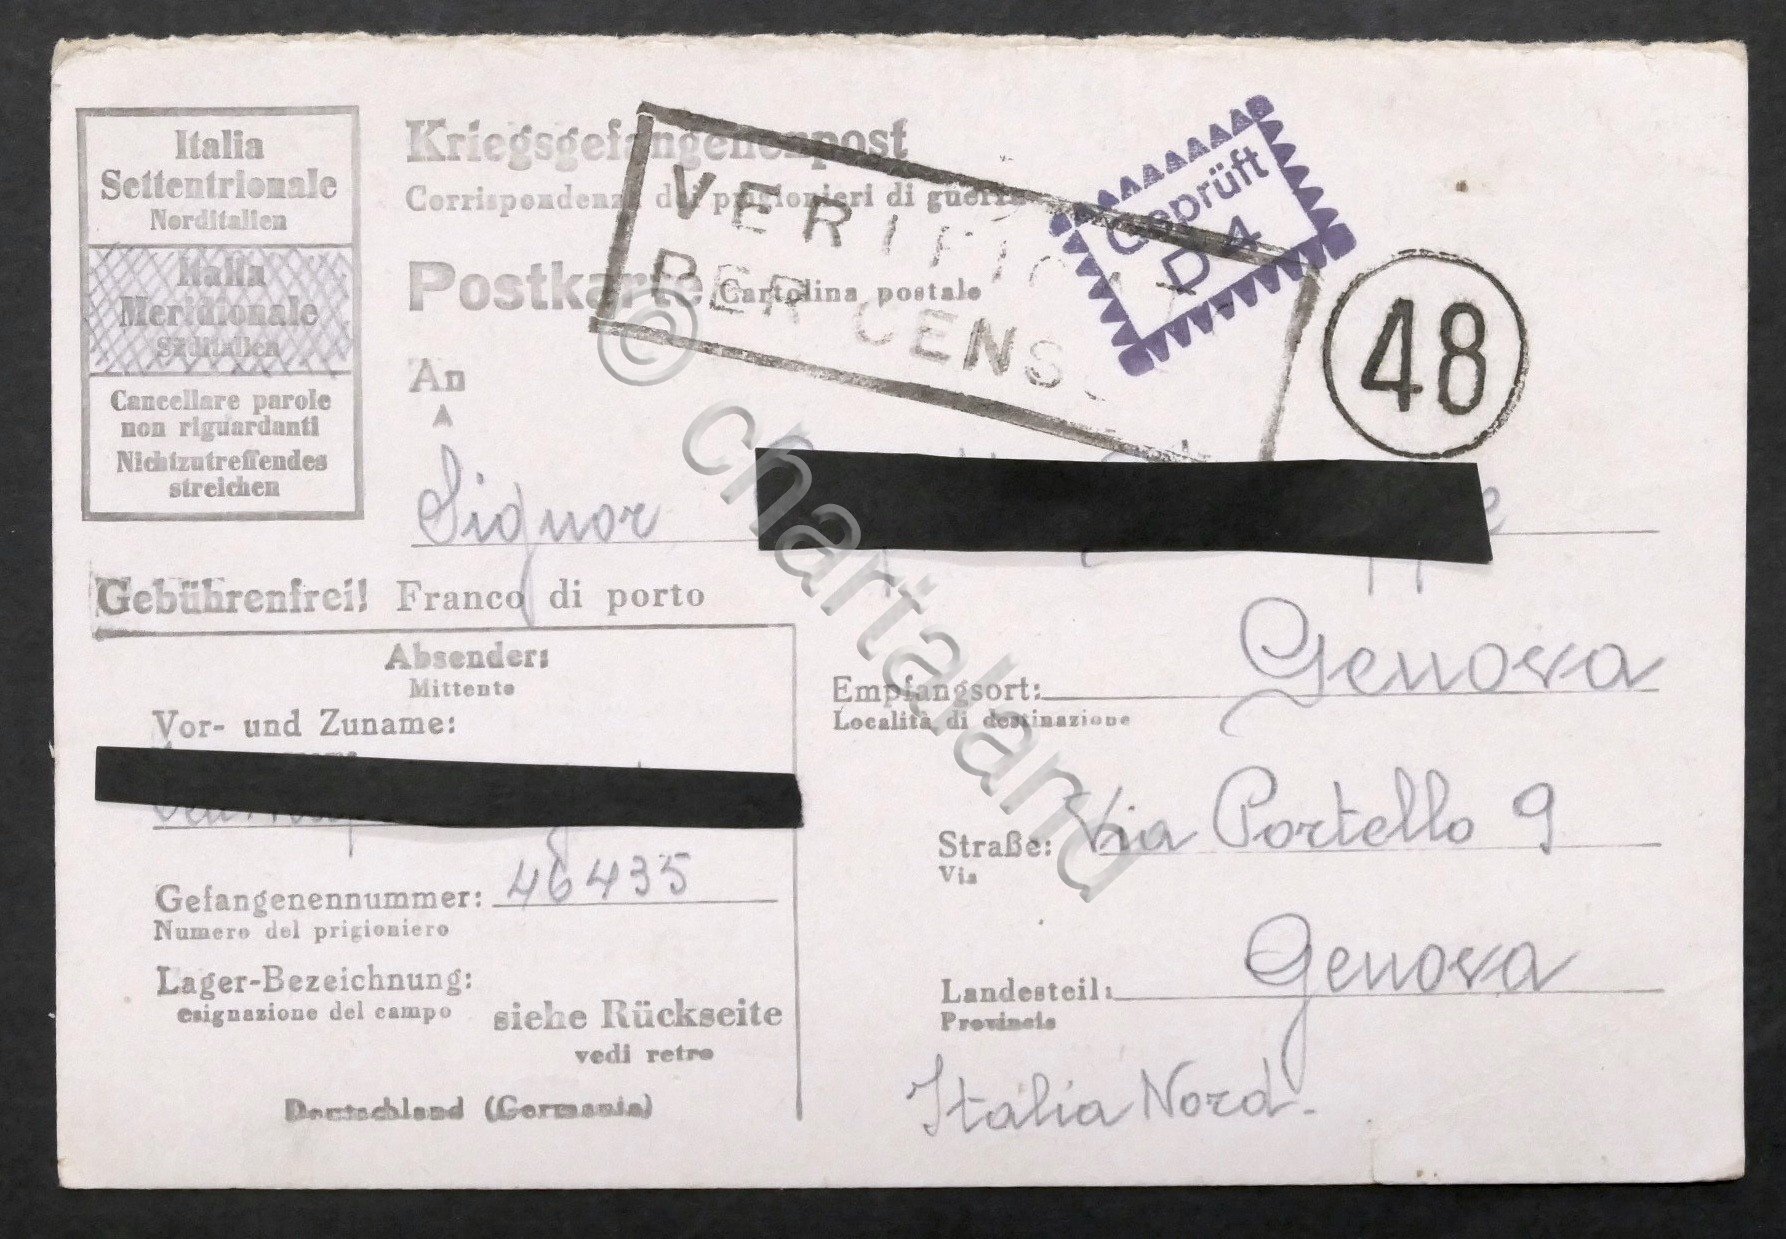 Italia
Settentrionale
Norditalien
Italia
Meridionale
Süditalien
Cancellare parole
non riguardanti
Nichtzutreffendes
streichen
Kriegsgefangenenpost
Corrispondenza dei prigionieri di guerra
Postkarte Cartolina postale
VERIFICAT
PER CENS
Geprüft
D 4
48
An
A
Signor
Gebührenfrei! Franco di porto
Absender:
Mittente
Vor- und Zuname:
Gefangenennummer: 46435
Numero del prigioniero
Lager-Bezeichnung:
esignazione del campo
siehe Rückseite
vedi retro
Deutschland (Germania)
Empfangsort: Genova
Località di destinazione
Straße: Via Portello 9
Via
Landesteil: Genova
Provincia
Italia Nord.
© chartaland